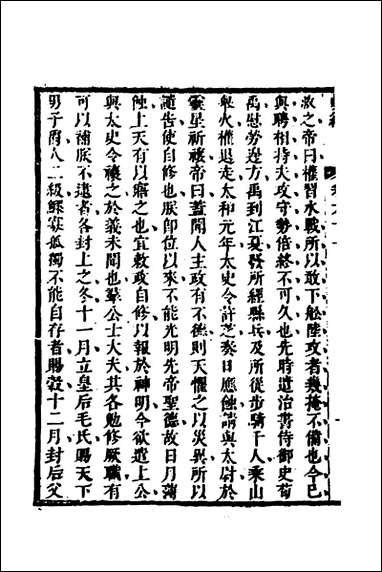 救之帝曰權習水戰所以敢下船陸攻者幾掩不備也今已
與聘相持夫攻守勢倍終不可久也先時遣治書侍御史荀
禹慰勞邊方禹到江夏發所經縣兵及所從步騎千人乘山
舉火權退走太和元年太史令許芝奏日應蝕請與太尉於
靈星祈禳帝曰蓋聞人主政有不德則天懼之以災異所以
譴告使自修也朕卽位以來不能光明先帝聖德故日月薄
蝕上天有以寤之也宜敕政自修以報於神明今欲遣上公
與太史令禳之於義未聞也羣公士大夫其各勉修厥職有
可以補朕不逮者各封上之冬十一月立皇后毛氏賜天下
男子爵人二級鰥寡孤獨不能自存者賜穀十二月封后父